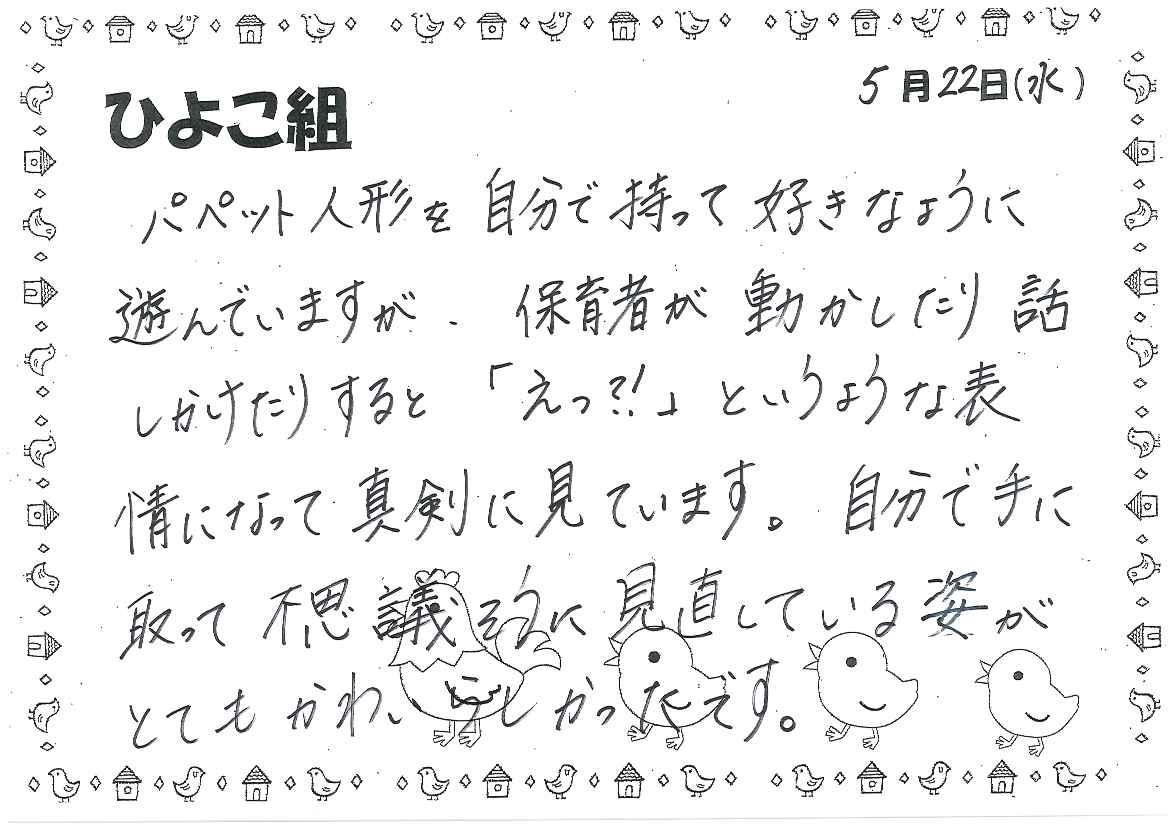 5月22日(水)
ひよこ組
パペット人形を自分で持って好きなように
遊んでいますが、保育者が動かしたり話
しかけたりすると「えっ?!」というような表
情になって真剣に見ています。自分で手に
取って不思議そうに見直している姿が
とてもかわいらしかったです。